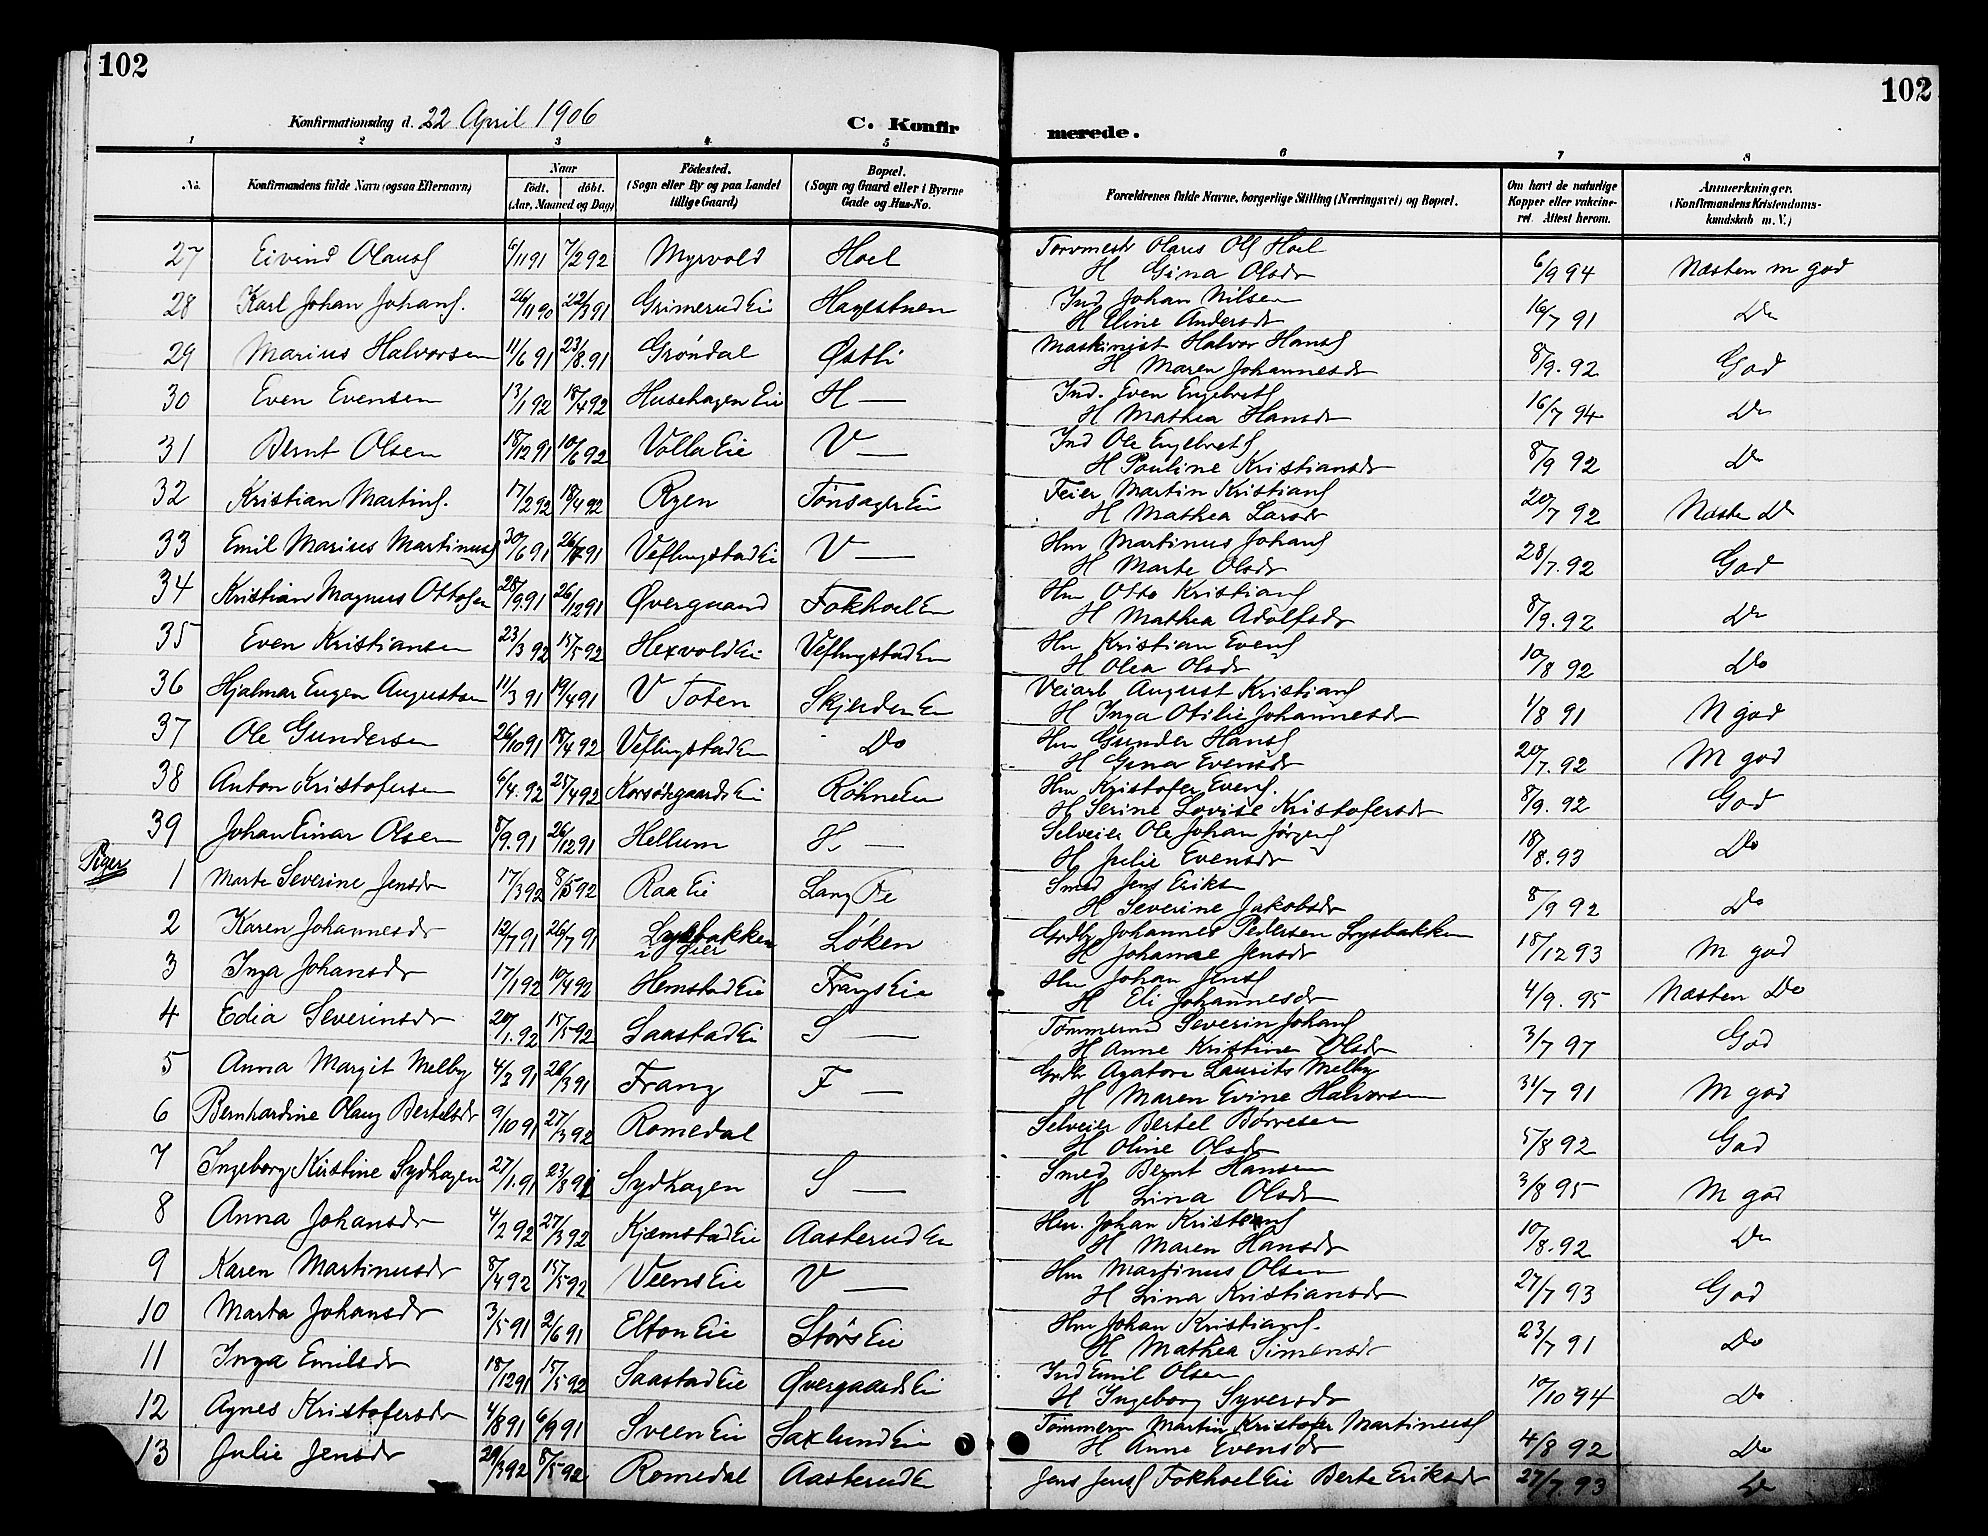 102
102
Konfirmationsdag d. 22 April 1906
C. Konfirmerede.
1 2 3 4 5 6 7 8
No. Konfirmandens fulde Navn (ogsaa Efternavn) Naar födt. döbt. (Aar, Maaned og Dag) Födested. (Sogn eller By og paa Landet tillige Gaard) Bopæl. (Sogn og Gaard eller i Byerne Gade og Hus-No. Forældrenes fulde Navne, borgerlige Stilling (Næringsvei) og Bopæl. Om havt de naturlige Kopper eller vakcineret. Attest herom. Anmerkninger. (Konfirmandens Kristendomskundskab m. V.)
27 Eivind Olaus 6/11 91 7/2 92 Myrvold Hoel Torvmestr Olaus Ols Hoel
H Gina Olsdr 6/9 94 Næsten m god
28 Karl Johan Johans. 26/11 90 22/3 91 Grimerud Eie Hagestuen Ind Johan Nilsen
H Eline Andersdr 16/7 91 Do
29 Marius Halvorsen 11/6 91 23/8. 91 Gröndal Østli Maskinist Halvor Hans
H Maren Johannesdr 8/9. 92 God
30 Even Evensen 13/1 92 18/4 92 Husehagen Eie H — Ind. Even Engebrets
H Mathea Hansdr 16/7 94 Do
31 Bernt Olsen 18/12 91 10/6 92 Volla Eie V — Ind Ole Engebrets
H Pauline Kristiansdr 8/9 92 Do
32 Kristian Martins. 17/2 92 18/4 92 Ryen Tönsager Eie Feier Martin Kristians
H Mathea Larsdr 20/7 92 Næsten Do
33 Emil Marius Martinus 30/6 91 26/7 91 Veflingstad Ei V — Hm Martinus Johans
H Marte Olsdr 28/7. 92 God
34 Kristian Magnus Ottosen 28/9. 91 26/12 91 Øvergaard Fokhoel Eie Hm Otto Kristians
H Mathea Adolfsdr 8/9. 92 Do
35 Even Kristiansen 23/3 92 15/5 92 Hexvold Ei Veflingstad Eie Hm Kristian Evens
H Olea Olsdr 10/8 92 Do
36 Hjalmar Eugen Augustsen 11/3 91 19/4 91 V Toten Skjerden Eie Veiarb August Kristians
H Inga Otilie Johannesdr 1/8 91 M god
37 Ole Gundersen 26/10 91 18/4 92 Veflingstad Eie Do Hm Gunder Hans
H Gina Evensdr 20/7. 92 M god
38 Anton Kristofersen 6/4. 92 25/4 92 Korsödegaards Eie Röhne Eie Hm Kristofer Evens.
H Serine Lovise Kristofersdr 8/9. 92 God
39 Johan Einar Olsen 8/9. 91 26/12 91 Hellum H — Selveier Ole Johan Jörgens
H Julie Evensdr 18/8. 93 Do
Piger
1 Marte Severine Jensdr 17/3 92 8/5 92 Raa Eie Lang Smed Jens Eriks
H Severine Jakobsdr 8/9 92 Do
2 Karen Johannesdr 12/7 91 26/7 91 Lysbakken Eier Löken Grdbr Johannes Pedersen Lysbakken
H Johanne Jensdr 18/12 93 M god
3 Inga Johansdr 17/1 92 10/4 92 Hemstad Eie Frangs Eie Hm Johan Jens
H Eli Johannesdr 4/9. 95 Næsten Do
4 Edia Severinsdr 20/1. 92 15/5 92 Saastad Ei S — Tömmermd Severin Johans
H Anne Kristine Olsdr 3/7 97 God
5 Anna Margit Melby 4/2 91 26/3 91 Frang F — Grdbr Agaton Laurits Melby
H Maren Evine Halvorsen 31/7 91 M god
6 Bernhardine Olaug Bertelsdr 9/10 91 27/3 92 Romedal Selveier Bertel Börresen
H Oline Olsdr 5/8 92 God
7 Ingeborg Kristine Sydhagen 27/1. 91 23/8 91 Sydhagen S — Smed Bernt Hansen
H Lina Olsdr 3/8 95 M god
8 Anna Johansdr 4/2 92 27/3 92 Kjæmstad Eie Aasterud Eie Hm. Johan Kristians
H Maren Hansdr 10/8. 92 Do
9 Karen Martinusdr 8/4 92 15/5 92 Veens Eie V — Hm Martinus Olsen
H Lina Kristiansdr 27/7 93 God
10 Marta Johansdr 3/5 91 2/6 91 Elton Eie Störs Eie Hm Johan Kristians.
H Mathea Simensdr 23/7 91 Do
11 Inga Emilsdr 18/12 91 15/5 92 Saastad Eie Øvergaards Eie Ind Emil Olsen
H Ingeborg Syversdr 10/10 94 Do
12 Agnes Kristofersdr 4/8 91 6/9 91 Sveen Eie Saxlund Eie Tömmerm Martin Kristofer Martinus
H Anne Evensdr 4/8 92 Do
13 Julie Jensdr 29/3 92 8/5 92 Romedal Aasterud Eie Jens Jens Fokhoel Eie Berte Eriksdr 27/7. 93 Do